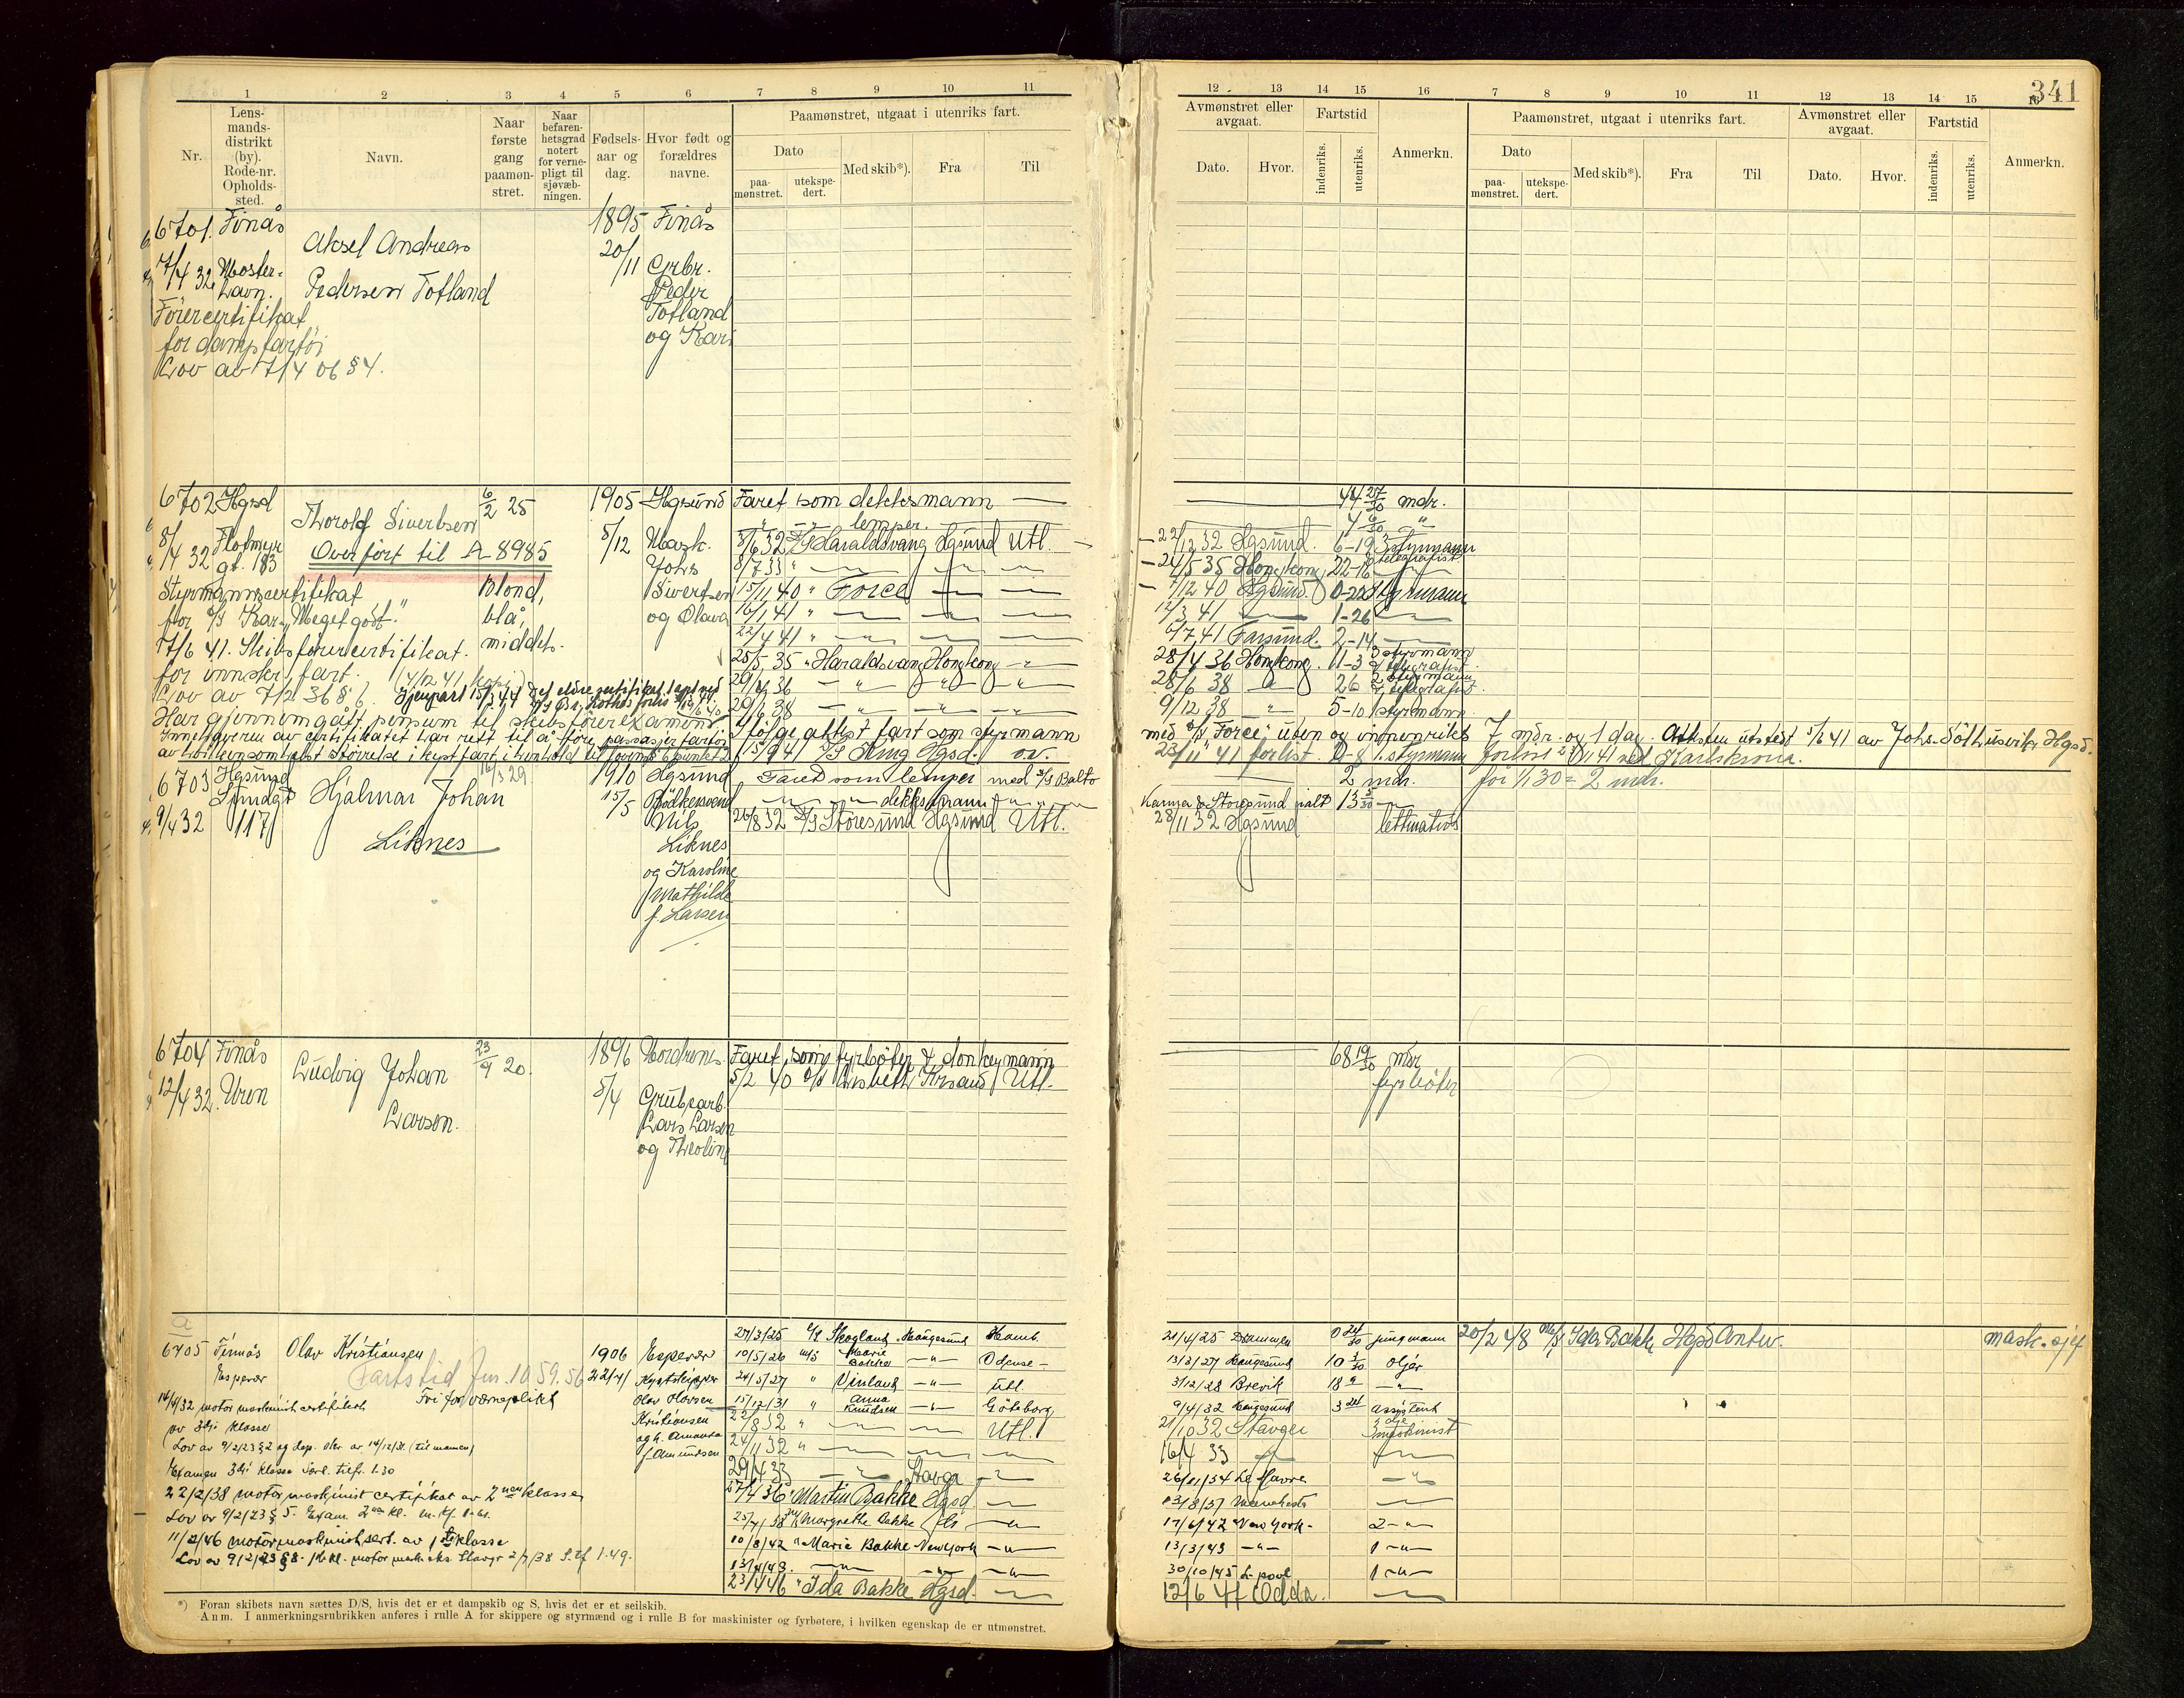 341
1 2 3 4 5 6 7 8 9 10 11
12 13 14 15 16 7 8 9 10 11 12 13 14 15 16
Nr.
Lens-
mands-
distrikt
(by).
Rode-nr.
Opholds-
sted.
Navn.
Naar
første
gang
paamøn-
stret.
Naar
befaren-
hetsgrad
notert
for verne-
pligt til
sjøvæb-
ningen.
Fødsels-
aar og
dag.
Hvor født og
forældres
navne.
Paamønstret, utgaat i utenriks fart.
Dato
paa-
mønstret.
utekspe-
dert.
Med skib*).
Fra
Til
Avmønstret eller
avgaat.
Dato.
Hvor.
Fartstid
indenriks.
utenriks.
Anmerkn.
Paamønstret, utgaat i utenriks fart.
Dato
paa-
mønstret.
utekspe-
dert.
Med skib*).
Fra
Til
Avmønstret eller
avgaat.
Dato.
Hvor.
Fartstid
indenriks.
utenriks.
Anmerkn.
6701. Finås
7/4 32 Moster-
havn.
Aksel Andreas
Pedersen Totland
1895
20/11
Finås
Grbr.
Peder
Totland
og Kari
Førercertifikat
for dampfartøi
Lov av 7/4 06 § 4.
6702 Hgsd
8/4 32 Flotmyr
gt. 183
Thorolf Sivertsen
Overført til A-8985
6/2 25
1905
5/12
Hgsund
Mask.
Johs
Sivertsen
og Olava
Styrmannscertifikat
Blond,
blå,
middels.
"Meget godt"
17/6 41. Skibsførercertifikat.
for innskr. fart.
Lov av 7/2 36 §
Har gjennemgått pensum til skibsførereksamen
Innehaveren av certifikatet har rett til å føre passasjerfartøi
Faret som dekksmann — 44 27/30 mdr.
" lemper. 4 6/30 "
3/6 32 D/S Haraldsvang Hgsund Utl. 22/12 32 Hgsund. 6-19 3 styrmann
8/7 33 " 24/5 35 Hongkong 22-16 telegrafist
15/11 40 " Force 7/12 40 Hgsund. 0-22 Styrmann
16/1 41 " 12/3 41 1-26
22/4 41 " 6/7 41 Farsund. 2-14
25/5 35 " Haraldsvang Hongkong 28/4 36 Hongkong. 11-3 styrmann
29/4 36 " 28/6 38 26
29/7 38 " 9/12 38 " 5-10 styrmann
Ifølge attest fart som styrmann med D/S Force, uten og innenriks 7 mdr. og 1 dag. Attesten utstedt 5/6 41 av Johs. Hgsd.
15/9 41 D/S Ring Hgsd. o.v. 23/11 41 forlist 2-8 1. styrmann forlist 23/11 41 ved Karlskrona.
6703 Hgsund
9/4 32 Strndgt
117
Hjalmar Johan
Liknes
16/3 29
1910
15/5
Hgsund
Bødkersvend
Nils
Liknes
og Karoline
Mathilde
f. Larsen
Faret som lemper med D/S Balto 2 mdr. før 1/1 30 = 2 mdr.
dekksmann Karma & Storesund ialt 13 5/30
26/8 32 D/S Storesund Hgsund Utl. 28/11 32 Hgsund lettmatros
6704 Finås
12/4 32. Uren
Ludvig Johan
Larsen.
23/9 20.
1896
5/4
Nordrenes
Grubearb.
Lars Larsen
og Theoline
Faret som fyrbøter & donkeymann 68 19/30 mdr
5/2 40 D/S Lisbeth Krsand Utl. fyrbøter
a
6705 Finnås
Espevær
Olav Kristiansen
1906
22/4
Espevær
Kystskipper
Olav Olavsen
Kristiansen
og h. Amanda
f. Amundsen
Fartstid Jnr. 1059.56
Fri for værneplikt
14/4/32 motormaskinistcertifikat
av 3die klasse
Lov av 9/2/23 § 2 og dep. skr. av 14/12/31 (til mannen)
Examen 3die klasse
22/2/38 motormaskinist certifikat av 2nen klasse
Lov av 9/2/23 § 5. Exam. 2nen kl.
11/2/46 motormaskinistsert. av 1ste klasse
Lov av 9/2/23 § 8. 1ste kl. motormask.eks. Stavgr 2/7/38
27/3/25 D/S Skogland Haugesund Hamb. 21/4/25 Drammen 0 24/30 jungmann
10/5/26 m/s Marie Bakke —"— Odense 13/3/27 Haugesund 10 3/30 oljer
24/5/27 " Vinland —"— Utl. 3/12/28 Brevik 18 9 —"—
15/12/31 " Anna Knudsen —"— Göteborg 9/4/32 Haugesund 3 24 assistent
22/8 32 " Utl. 21/10 32 Stavger 3dje maskinist
24/11 32 " 16/4 33
29/4 33 Stavgr 26/01/34 Le Havre —"—
27/4 36 " Martin Bakke Hgsd 13/8/37 Manchester
25/7/38 m/s Margrethe Bakke 17/6/42 New York 2—"—
10/8/42 " Marie Bakke New York —"— 13/3/43 —"— 1—"—
13/4/43. —"— 30/10/45 L-pool 1—"—
23/4 46 " Ida Bakke Hgsd. 12/6 47 Odda.
20/2 48 M/S Ida Bakke Hgsd Antw. mask.sjef
*) Foran skibets navn sættes D/S, hvis det er et dampskib og S, hvis det er et seilskib.
Anm. I anmerkningsrubrikken anføres i rulle A for skippere og styrmænd og i rulle B for maskinister og fyrbøtere, i hvilken egenskap de er utmønstret.